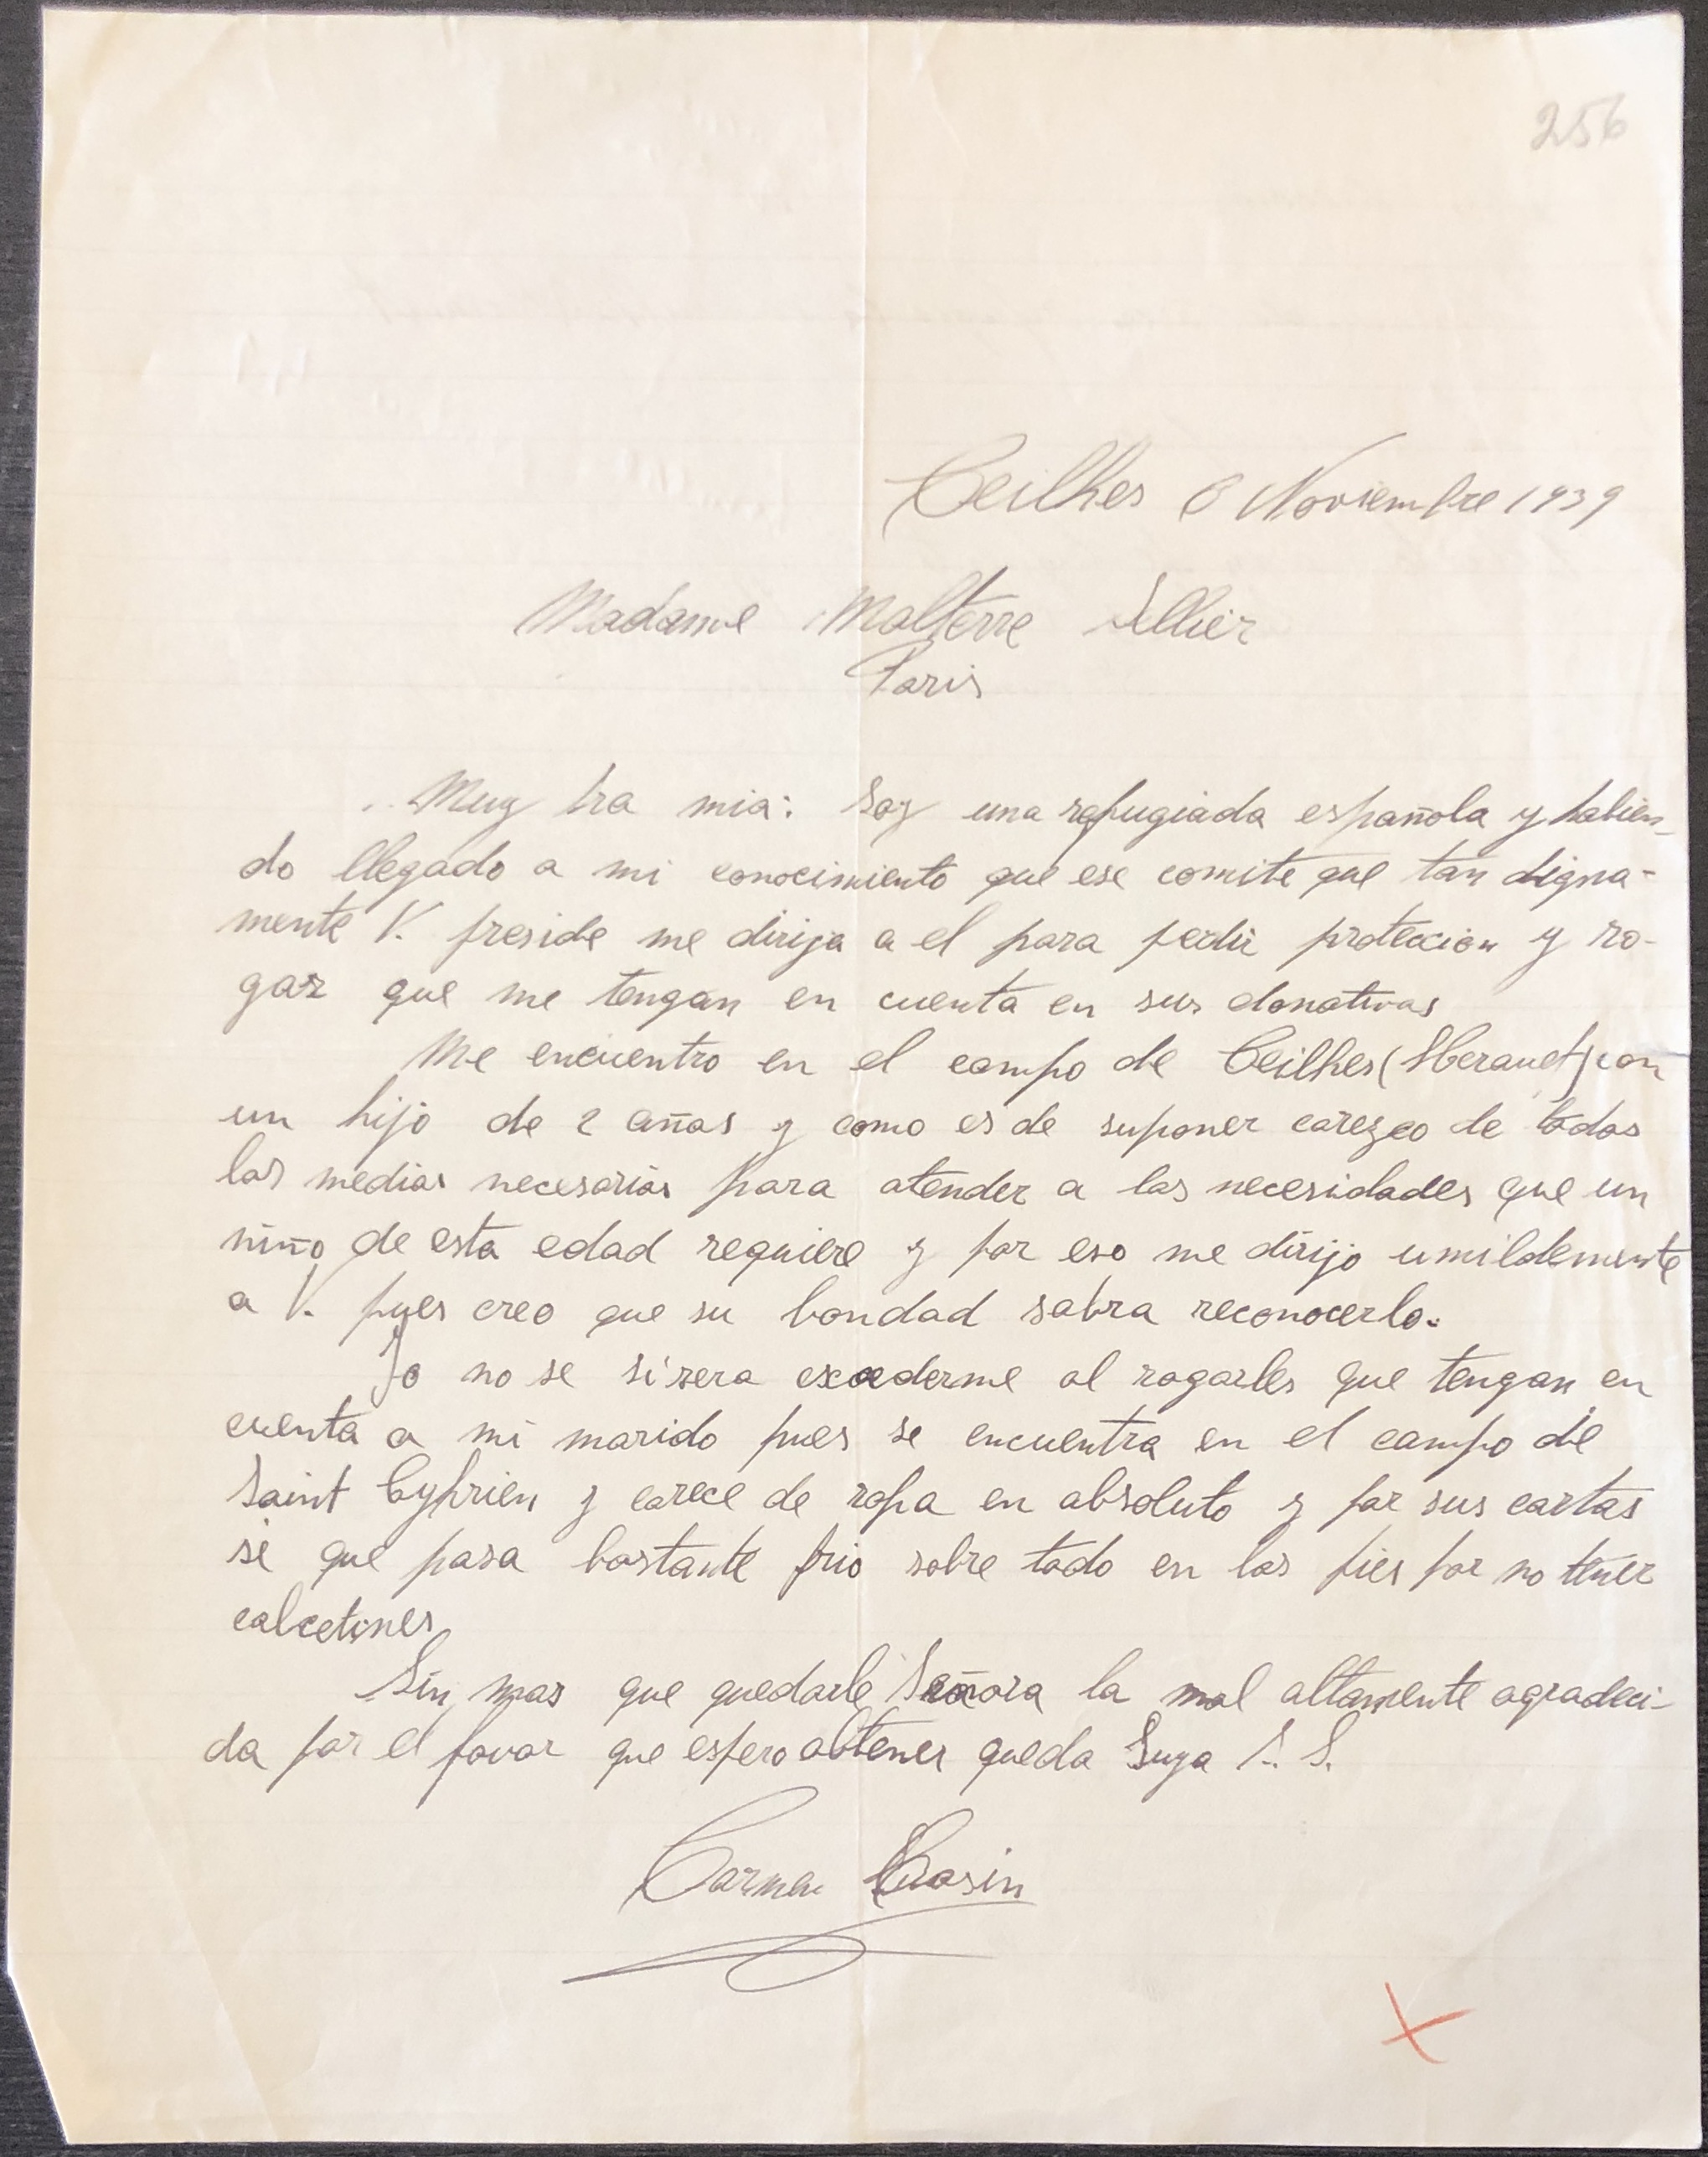 256
Ceilhes 6 Noviembre 1939
Madame Malterre Sellier
Paris
Muy Sra mia: Soy una refugiada española y habien-
do llegado a mi conocimiento que ese comite que tan digna-
mente V. preside me dirija a el para pedir proteccion y ro-
gar que me tengan en cuenta en sus donativos
Me encuentro en el campo de Ceilhes (Herault) con
un hijo de 2 años y como es de suponer carezco de todos
los medios necesarios para atender a las necesidades que un
niño de esta edad requiere y por eso me dirijo umildemente
a V. pues creo que su bondad sabra reconocerlo.
Yo no se si sera excederme al rogarles que tengan en
cuenta a mi marido pues se encuentra en el campo de
Saint Cyprien y carece de ropa en absoluto y por sus cartas
sé que pasa bastante frio sobre todo en los pies por no tener
calcetines
Sin mas que quedarle Señora la mal altamente agradeci-
da por el favor que espero obtener queda Suya S. S.
Carmen